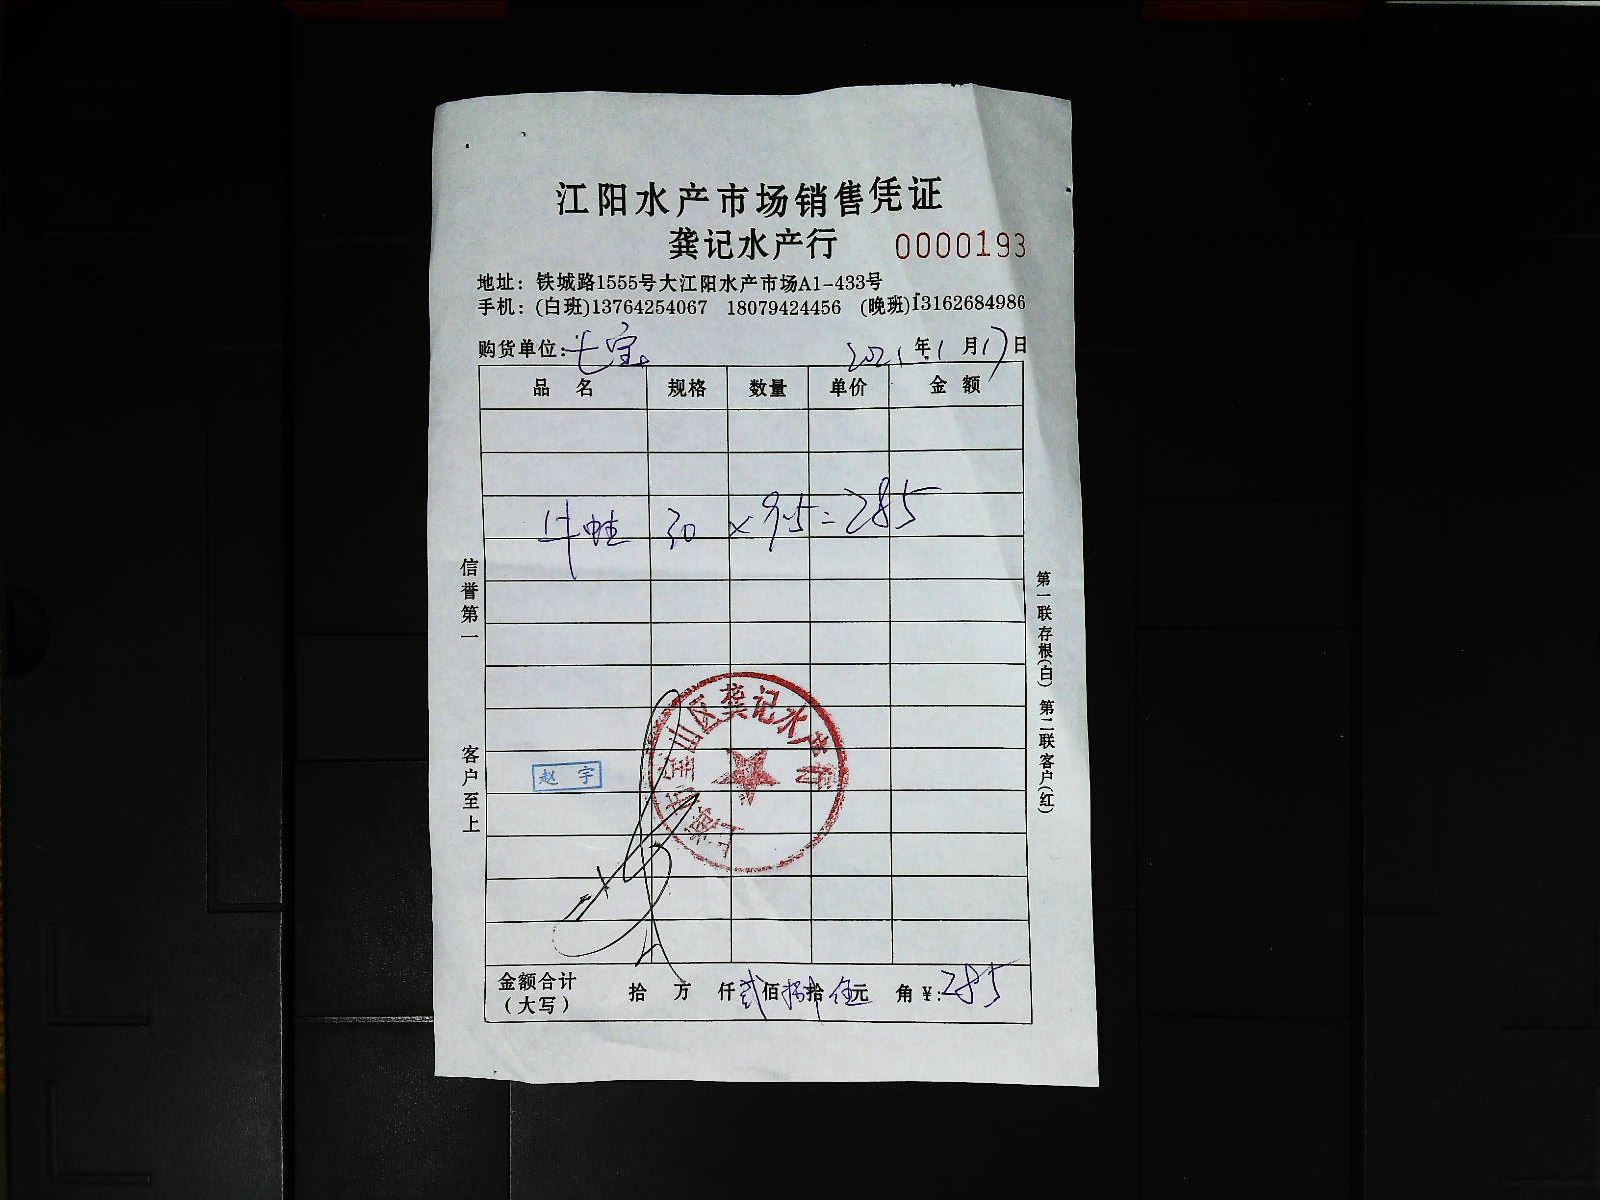 江阳水产市场销售凭证
龚记水产行 0000193
地址：铁城路1555号大江阳水产市场A1-433号
手机：(白班)13764254067 18079424456 (晚班)13162684986
购货单位：七宝 2021年1月17日
品名 规格 数量 单价 金额
牛蛙 30 × 9.5 = 285
信誉第一 客户至上
第一联存根(白) 第二联客户(红)
上海市宝山区龚记水产行
赵宇
金额合计(大写) 拾 万 仟 贰佰捌拾伍元 角 ¥:285